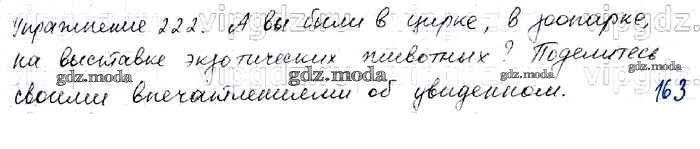 Упражнение 222. А вы были в цирке, в зоопарке,
на выставке экзотических животных? Поделитесь
gdz.moda gdz.moda gdz.moda
своими впечатлениями об увиденном. 163